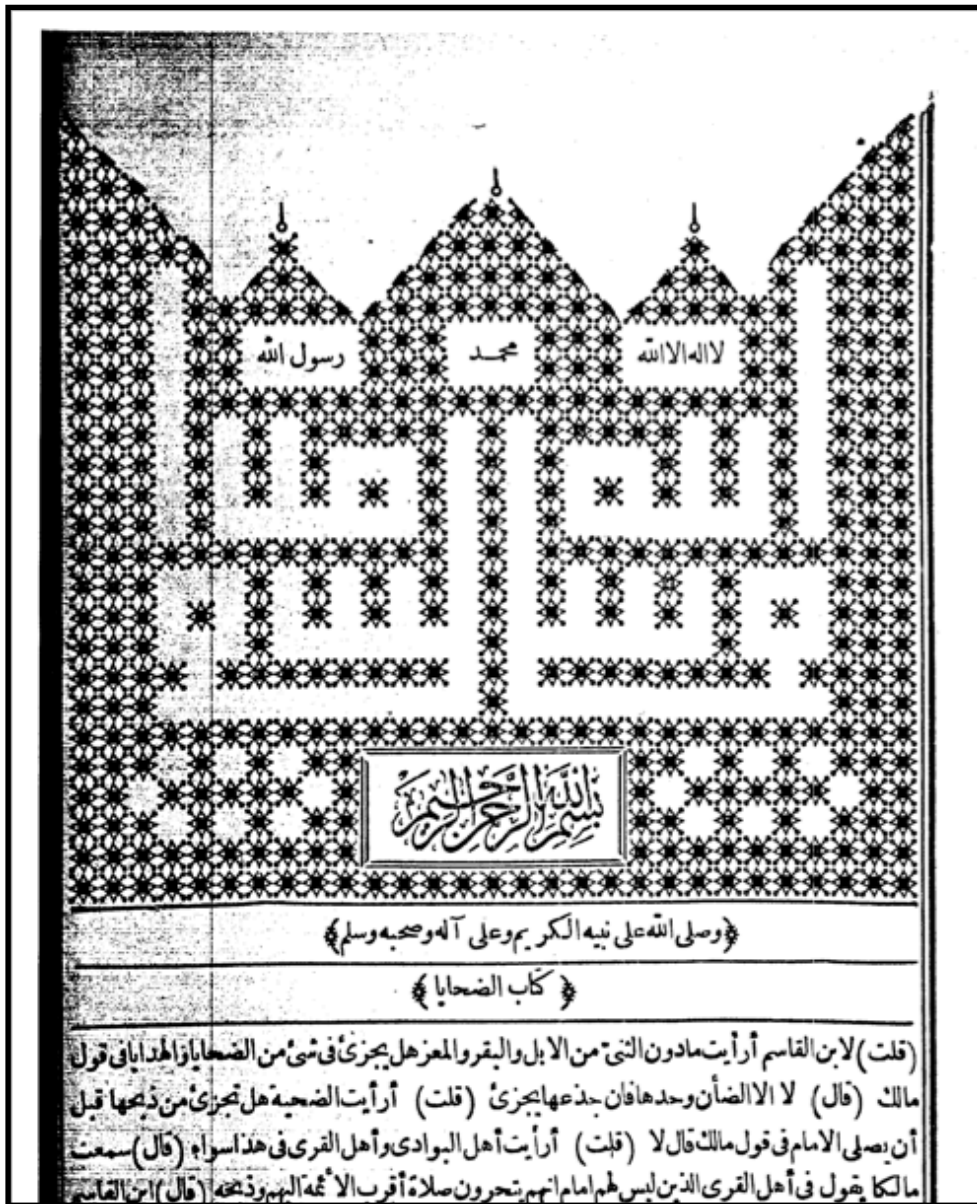 لا اله الا الله محمد رسول الله
بسم الله الرحمن الرحيم
﴿وصلى الله على نبيه الكريم وعلى آله وصحبه وسلم﴾
﴿ كتاب الضحايا ﴾
(قلت) لابن القاسم أرأيت مادون الثنىّ من الابل والبقر والمعز هل يجزئ فى شئ من الضحايا والهدايا فى قول
مالك (قال) لا الا الضأن وحدها فان جذعها يجزئ (قلت) أرأيت الضحية هل تجزئ من ذبحها قبل
أن يصلى الامام فى قول مالك قال لا (قلت) أرأيت أهل البوادى وأهل القرى فى هذا سواء (قال) سمعت
مالكا يقول فى أهل القرى الذين ليس لهم امام انهم يتحرون صلاة أقرب الأئمة اليهم وذبحه (قال) ابن القاسم